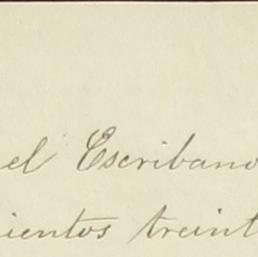 el Escribano
ientos treint